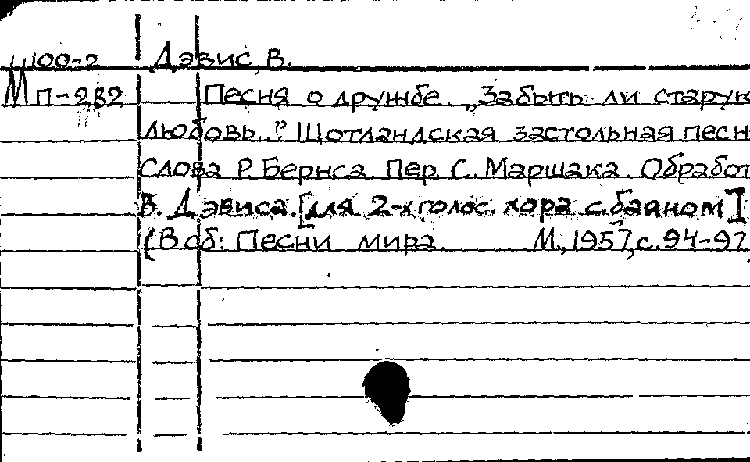 Ш00-2 Дэвис, В.
М п-282 Песня о дружбе. „Забыть ли старую
любовь..?" Шотландская застольная песн
Слова Р. Бернса. Пер. С. Маршака. Обработ
В. Дэвиса. [для 2-х голос. хора с баяном]
(В сб: Песни мира. М., 1957, с. 94-97